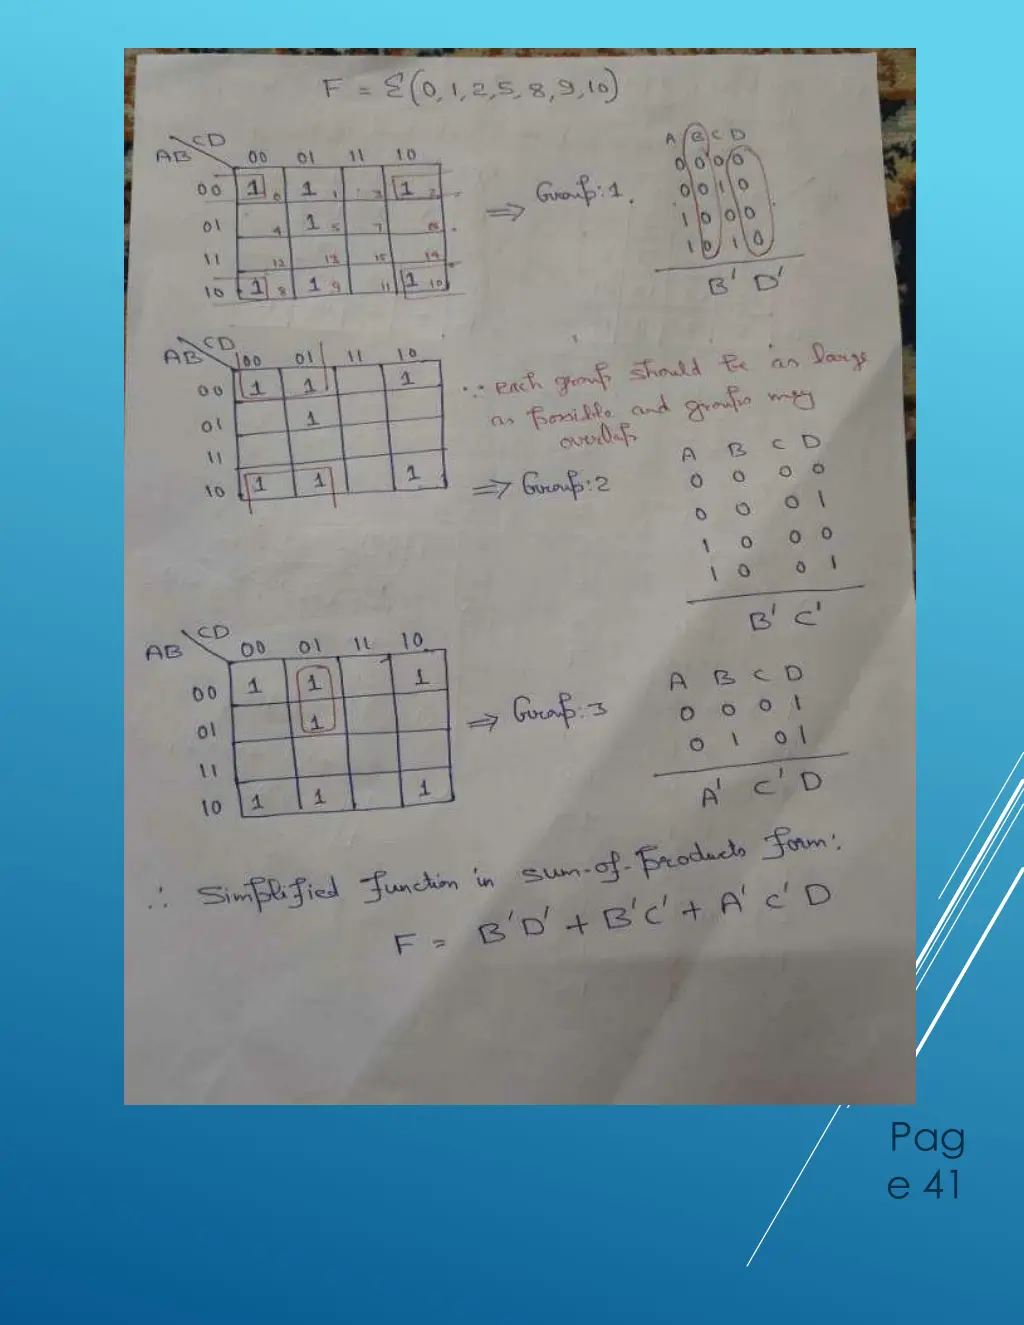 F = Σ(0,1,2,5,8,9,10)
AB CD 00 01 11 10
00 1 0 1 1 3 1 2
01 4 1 5 7 6
11 12 13 15 14
10 1 8 1 9 11 1 10
⇒ Group:1.
A B C D
0 0 0 0
0 0 1 0
1 0 0 0
1 0 1 0
B' D'
AB CD 00 01 11 10
00 1 1 1
01 1
11
10 1 1 1
∵ each group should be as large
as possible and groups may
overlap
⇒ Group:2
A B C D
0 0 0 0
0 0 0 1
1 0 0 0
1 0 0 1
B' C'
AB CD 00 01 11 10
00 1 1 1
01 1
11
10 1 1 1
⇒ Group:3
A B C D
0 0 0 1
0 1 0 1
A' C' D
∴ Simplified function in sum-of-products form:
F = B'D' + B'C' + A'C'D
Pag
e 41